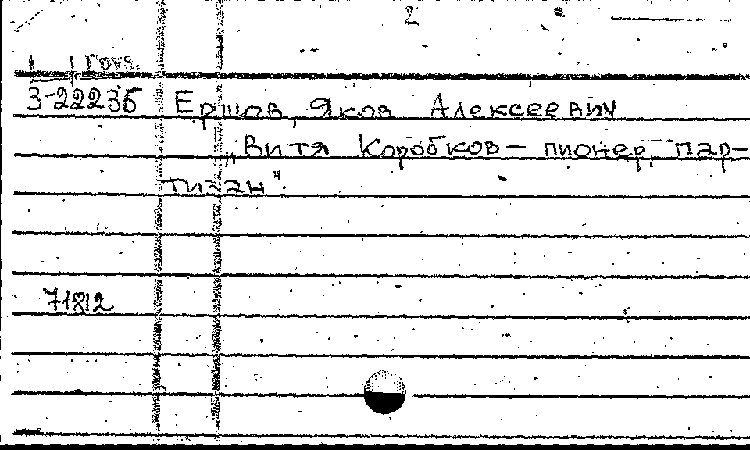 2
3-22235 Ершов, Яков Алексеевич
„Витя Коробков – пионер, пар-
тизан".
71812